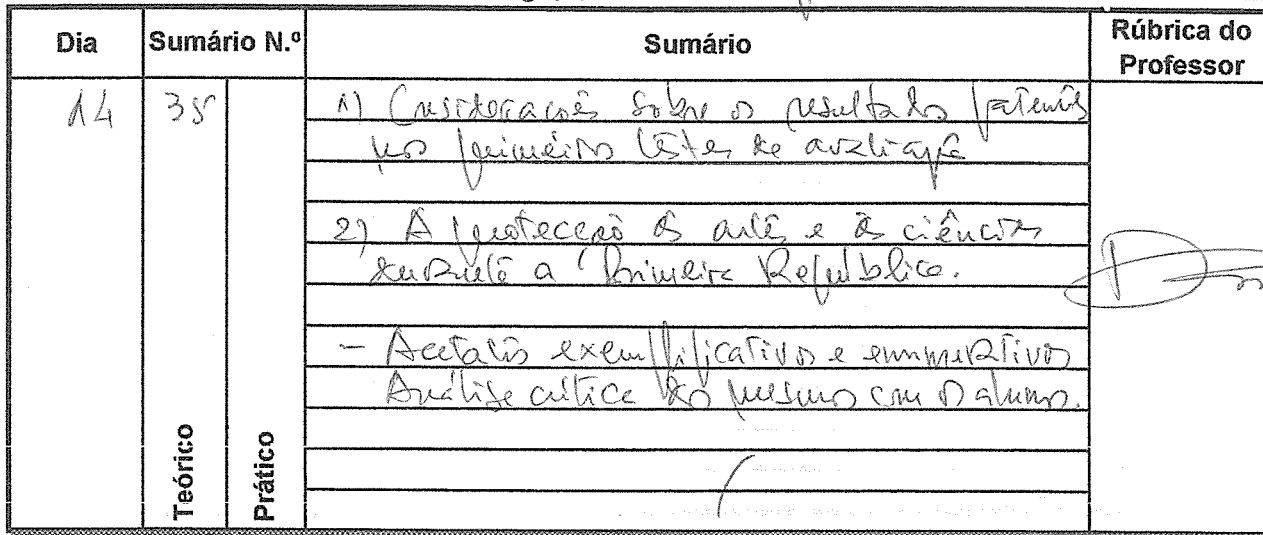 Dia Sumário N.º Sumário Rúbrica do Professor
14 35 1) Considerações sobre os resultados patentes
nos primeiros testes de avaliação
2) A protecção às artes e às ciências
durante a Primeira República.
- Acetatos exemplificativos e enumerativos
Análise crítica dos mesmos com os alunos.
Teórico
Prático